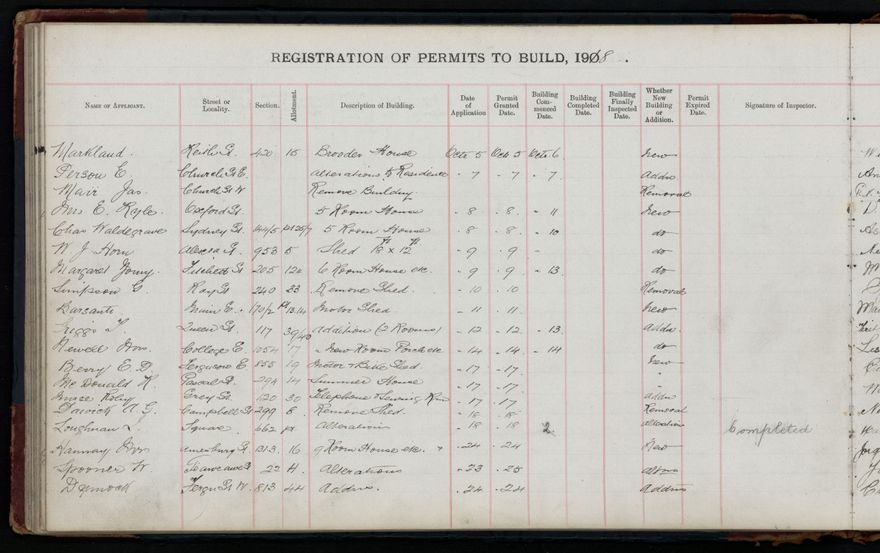 REGISTRATION OF PERMITS TO BUILD, 1918.
NAME OF APPLICANT. Street or Locality. Section. Allotment. Description of Building. Date of Application Permit Granted Date. Building Com-menced Date. Building Completed Date. Building Finally Inspected Date. Whether New Building or Addition. Permit Expired Date. Signature of Inspector.
Markland Keith St. 420 15 Brooder House Octr 5 Oct 5 Octr 6 New
Person E Church St E. alterations to Residence - 7 - 7 - 7 Addn
Marr Jas. Church St W Remove Building Removal
Mrs E. Kyle Oxford St. 5 Room House - 8 - 8 - 11 New
Chas Waldegrave Sydney St 5 Room House - 8 - 8 - 10 do
W. J. Horn St. 953 5 Shed 18ft x 12ft - 9 - 9 - do
Margaret St 205 120 6 Room House etc. - 9 - 9 - 13 do
Simpson G. Ray St 240 23 Remove Shed - 10 - 10 Removal
Barsanti Main E. 170/2 Pt 13.14 Motor Shed - 11 - 11 New
Griggs Queen St. 117 39/40 Addition (2 Rooms) - 12 - 12 - 13 Addn
Newell Wm. College E. 1054 17 New Room Porch etc - 14 - 14 - 14 do
Berry E. D. Ferguson E 855 19 Motor & Shed - 17 - 17 New
McDonald K. Pascal St. 294 14 Summer House - 17 - 17 "
Grey St. 120 30 Telephone & Sewing Rm - 17 - 17 addn
A. G. Campbell St 299 5 Remove Shed - 18 - 18 Removal
Loughnan Square 662 pt Alterations - 18 - 18 2 alteration Completed
Hannay Wm St 1313 16 9 Room House etc. - 24 - 24 New
Spooner W 22 H. Alterations - 23 - 25 altrns
Dymock Fergu St W. 813 44 Addns. - 24 - 24 Addns